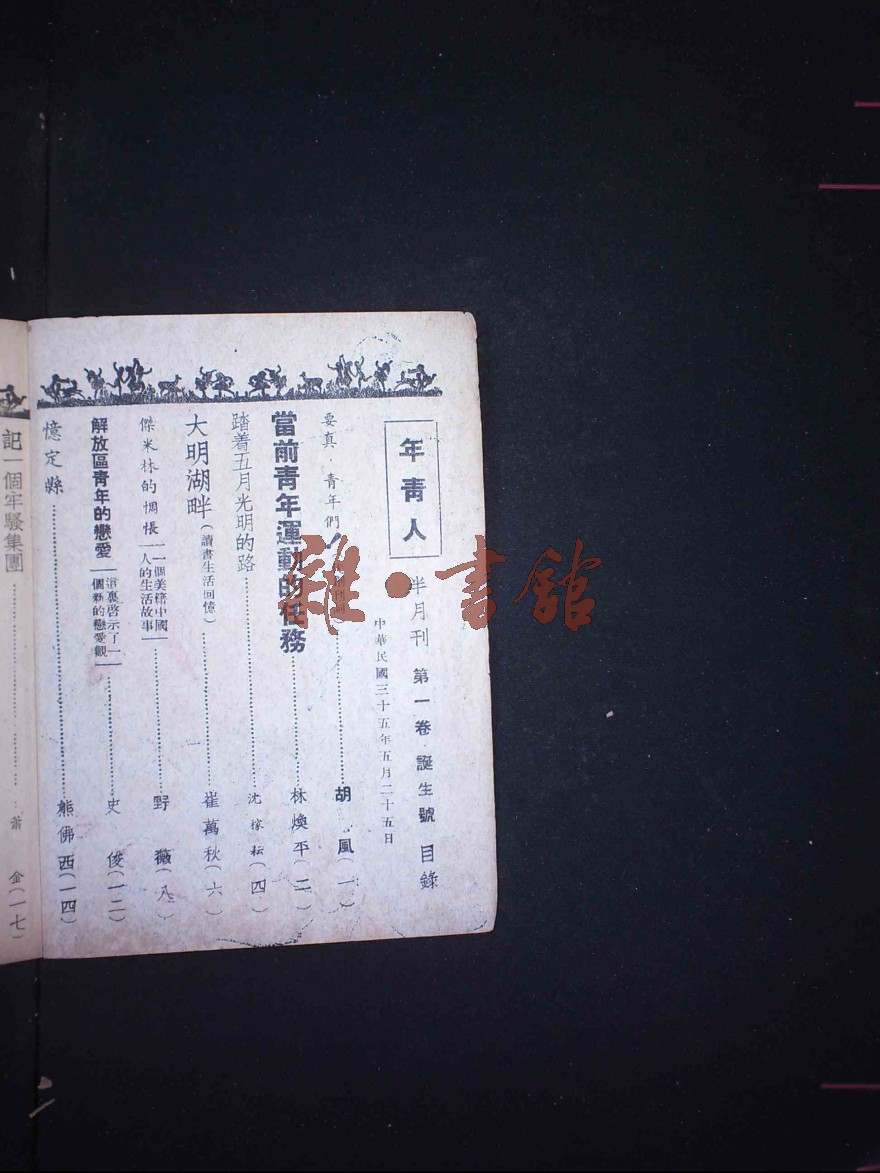 年青人
半月刊 第一卷·誕生號 目錄
中華民國三十五年五月二十五日
要真·青年們！………胡風(一)
當前青年運動的任務………林煥平(二)
踏着五月光明的路………沈 耘(四)
大明湖畔(讀書生活回憶)………崔萬秋(六)
傑米林的惆悵 一個美籍中國人的生活故事………野薇(八)
解放區青年的戀愛 這裏啓示了一個新的戀愛觀………史俊(一二)
憶定縣………熊佛西(一四)
記一個牢騷集團………蕭金(一七)
雜·書館